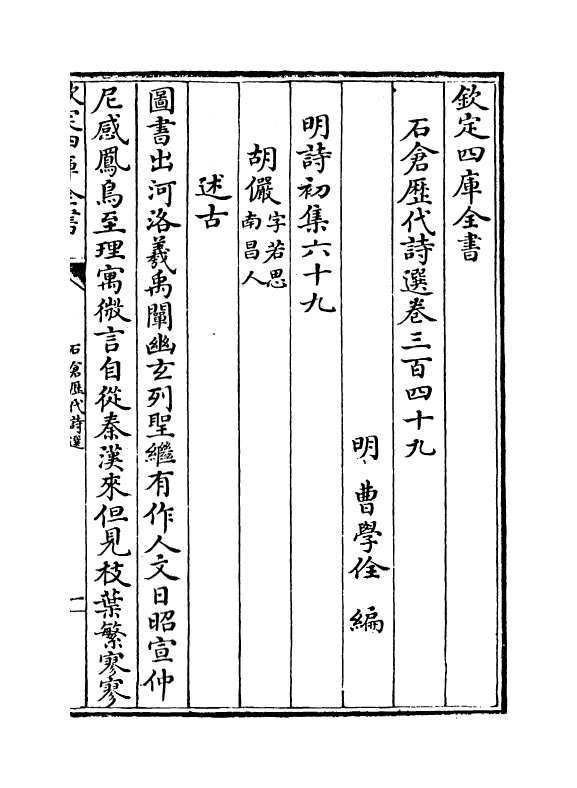 欽定四庫全書
石倉歴代詩選卷三百四十九
明　曹學佺　編
明詩初集六十九
胡儼字若思
南昌人
述古
圖書出河洛羲禹闡幽玄列聖繼有作人文日昭宣仲
尼感鳳鳥至理寓微言自從秦漢來但見枝葉繁寥寥
欽定四庫全書
石倉歴代詩選
一